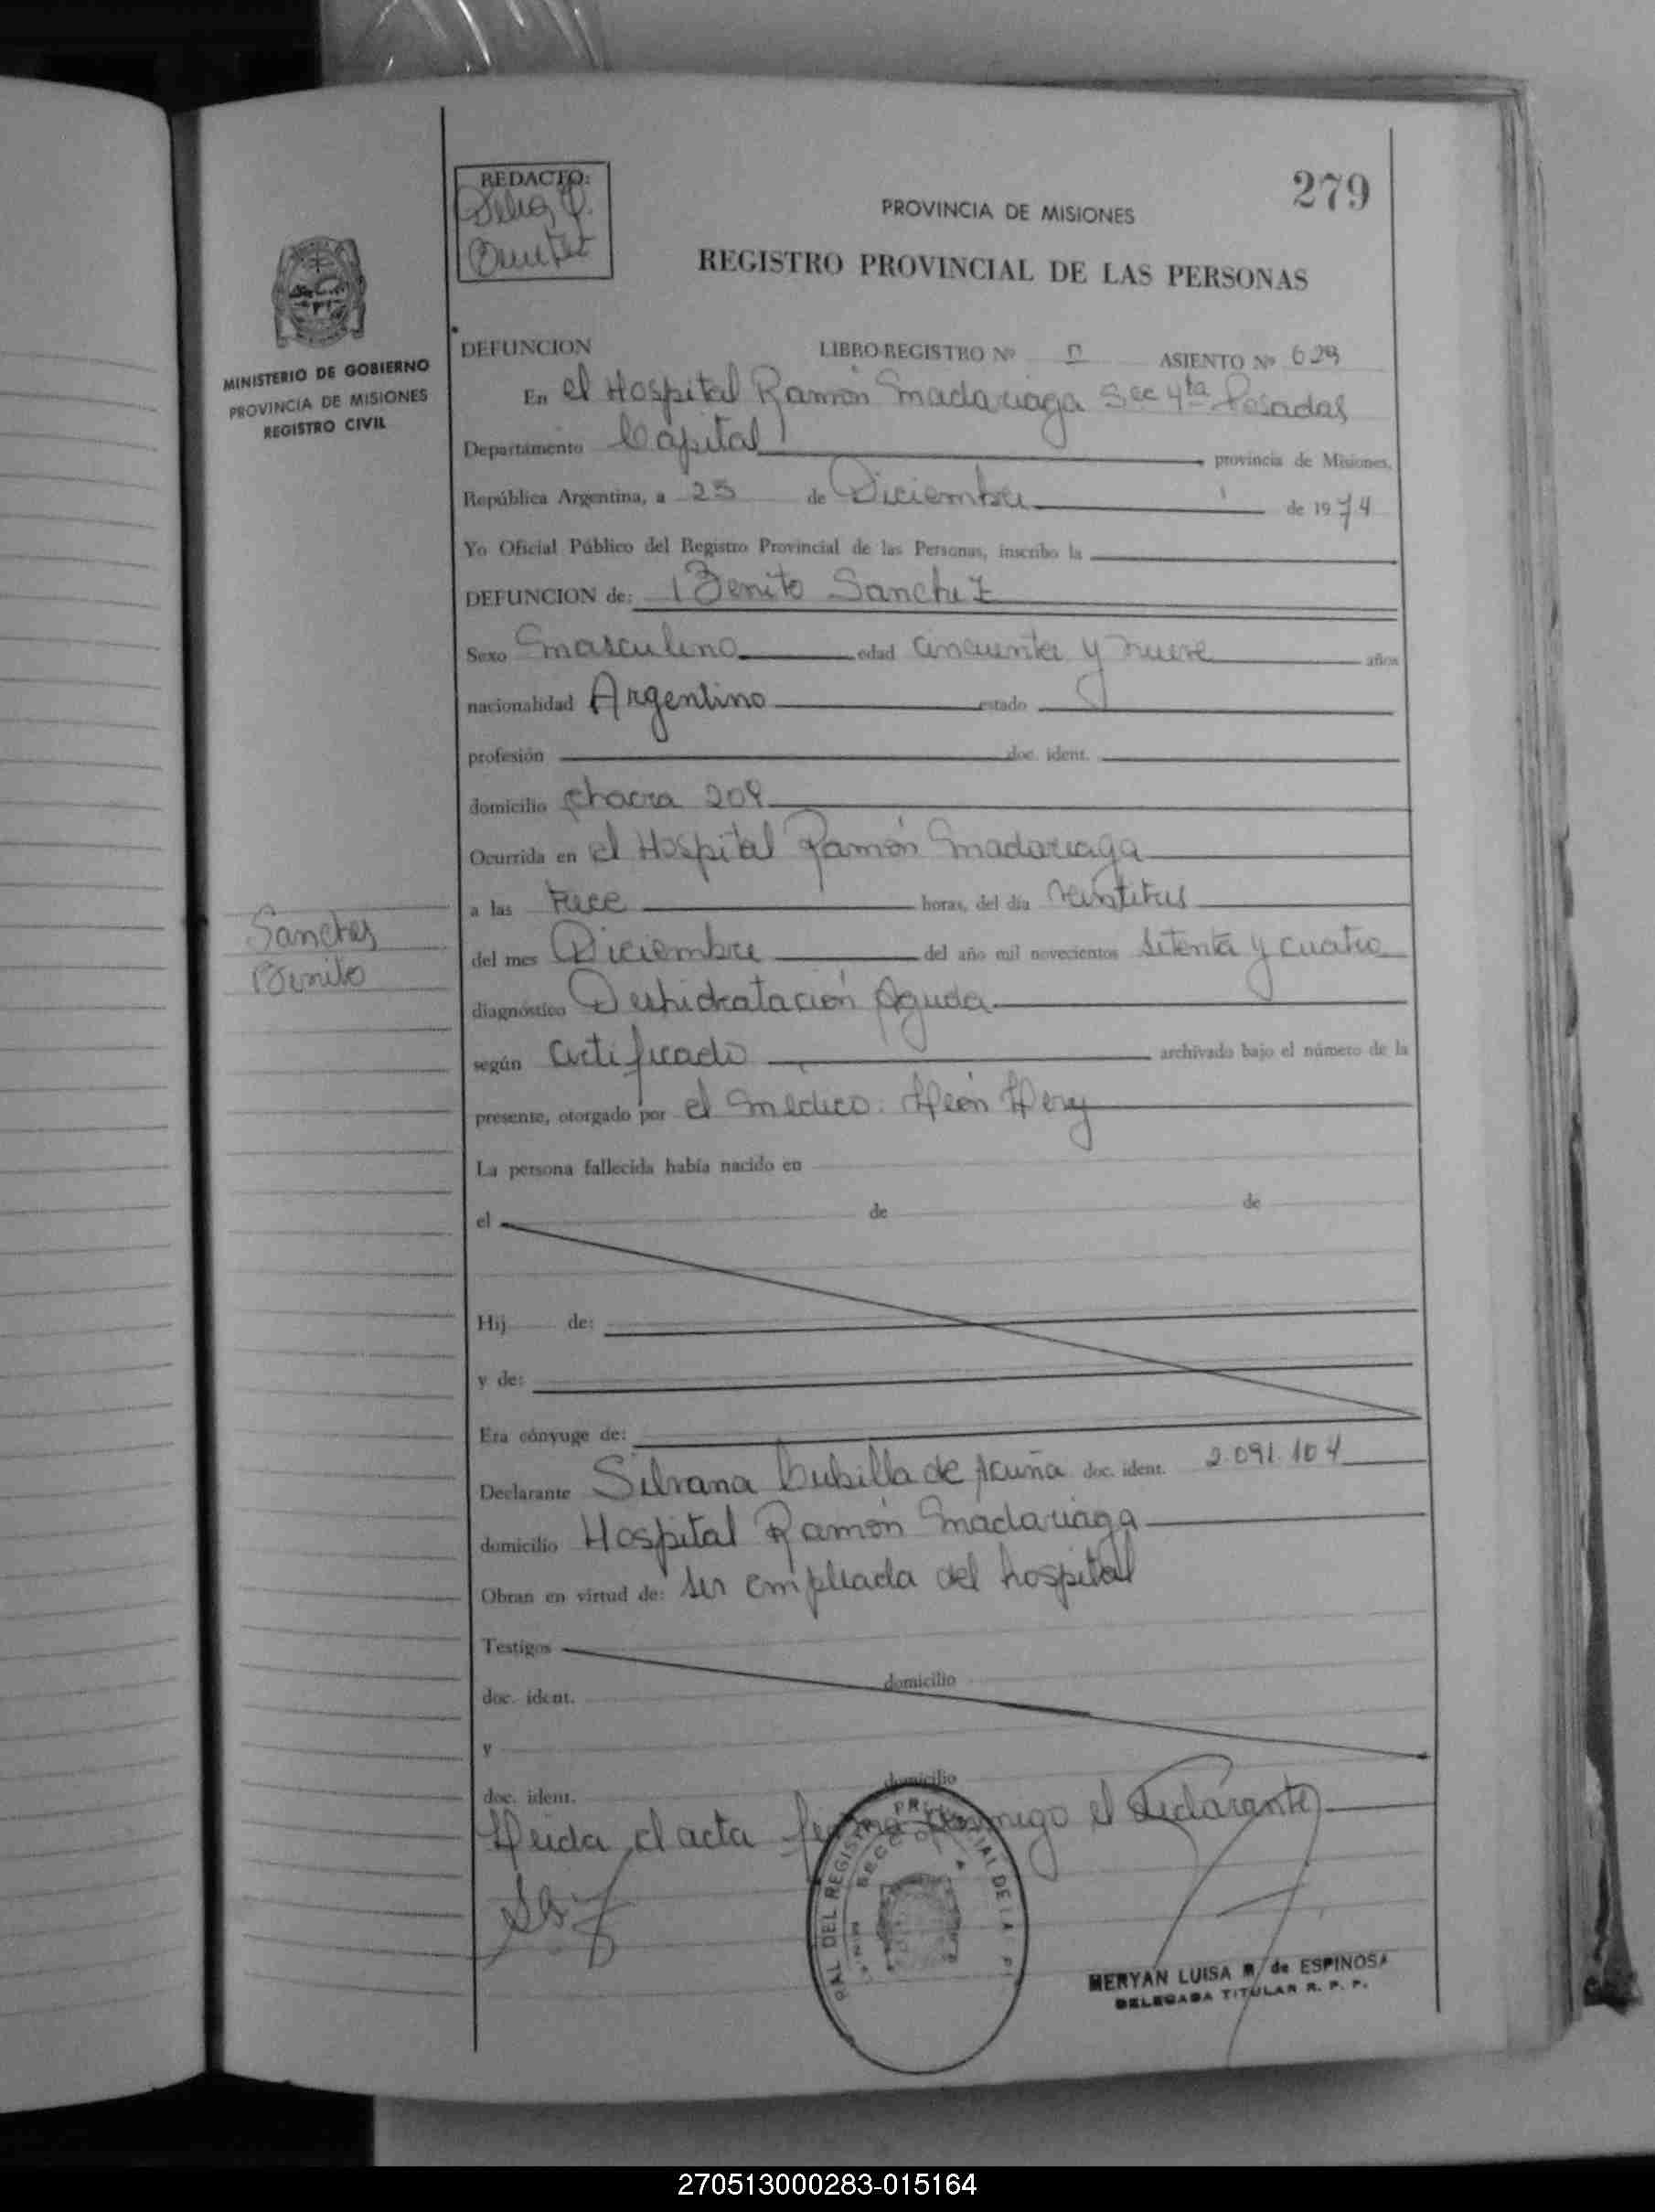 279
REDACTO:
PROVINCIA DE MISIONES
REGISTRO PROVINCIAL DE LAS PERSONAS
MINISTERIO DE GOBIERNO
PROVINCIA DE MISIONES
REGISTRO CIVIL
DEFUNCION LIBRO REGISTRO Nº ASIENTO Nº 629
En el Hospital Ramón Madariaga Sec 4ta Posadas
Departamento Capital provincia de Misiones,
República Argentina, a 23 de Diciembre de 1974
Yo Oficial Público del Registro Provincial de las Personas, inscribo la
DEFUNCION de: Benito Sanchez
Sexo masculino edad cincuenta y nueve años
nacionalidad Argentino estado
profesión doc. ident.
domicilio chacra 208
Ocurrida en el Hospital Ramón Madariaga
a las trece horas, del día veintitres
del mes Diciembre del año mil novecientos setenta y cuatro
Sanchez
Benito
diagnóstico Deshidratación Aguda
según certificado archivado bajo el número de la
presente, otorgado por el médico: León
La persona fallecida había nacido en
el de de
Hij de:
y de:
Era cónyuge de:
Declarante Silvana Cubilla de Acuña doc. ident. 2.091.104
domicilio Hospital Ramón Madariaga
Obran en virtud de: ser empleada del hospital
Testigos
doc. ident. domicilio
y
doc. ident. domicilio
Leida el acta firma conmigo el declarante
MERYAN LUISA R. de ESPINOSA
DELEGADA TITULAR R. P. P.
270513000283-015164